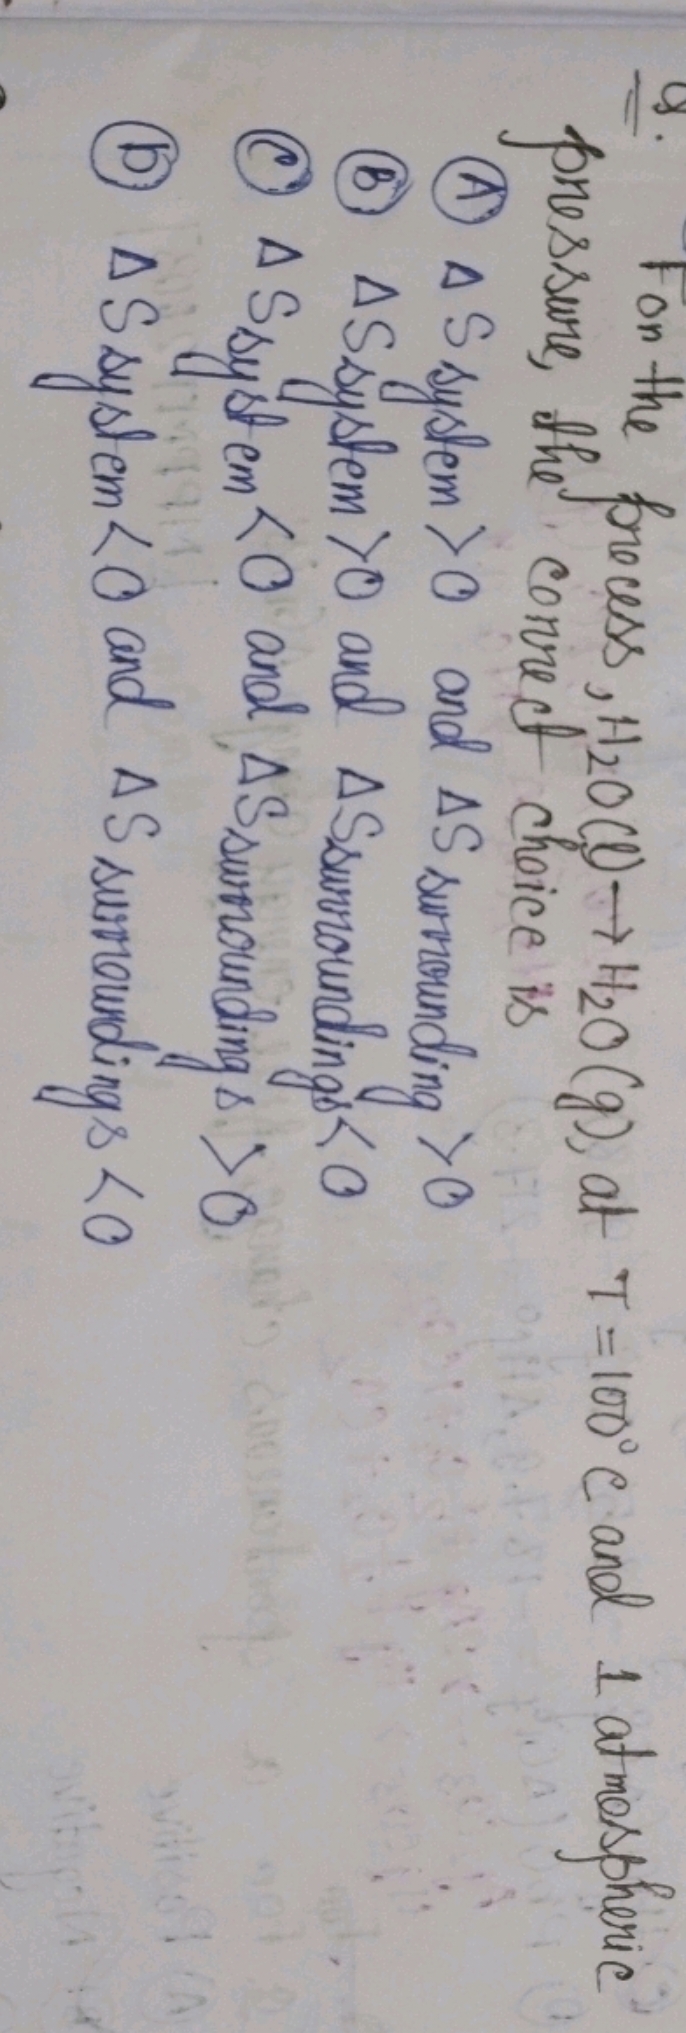 Q. For the process, H2O(l) → H2O(g), at T = 100°C and 1 atmospheric
pressure, the correct choice is
(A) ΔS system > 0 and ΔS surrounding > 0
(B) ΔS system > 0 and ΔS surroundings < 0
(C) ΔS system < 0 and ΔS surroundings > 0
(D) ΔS system < 0 and ΔS surroundings < 0